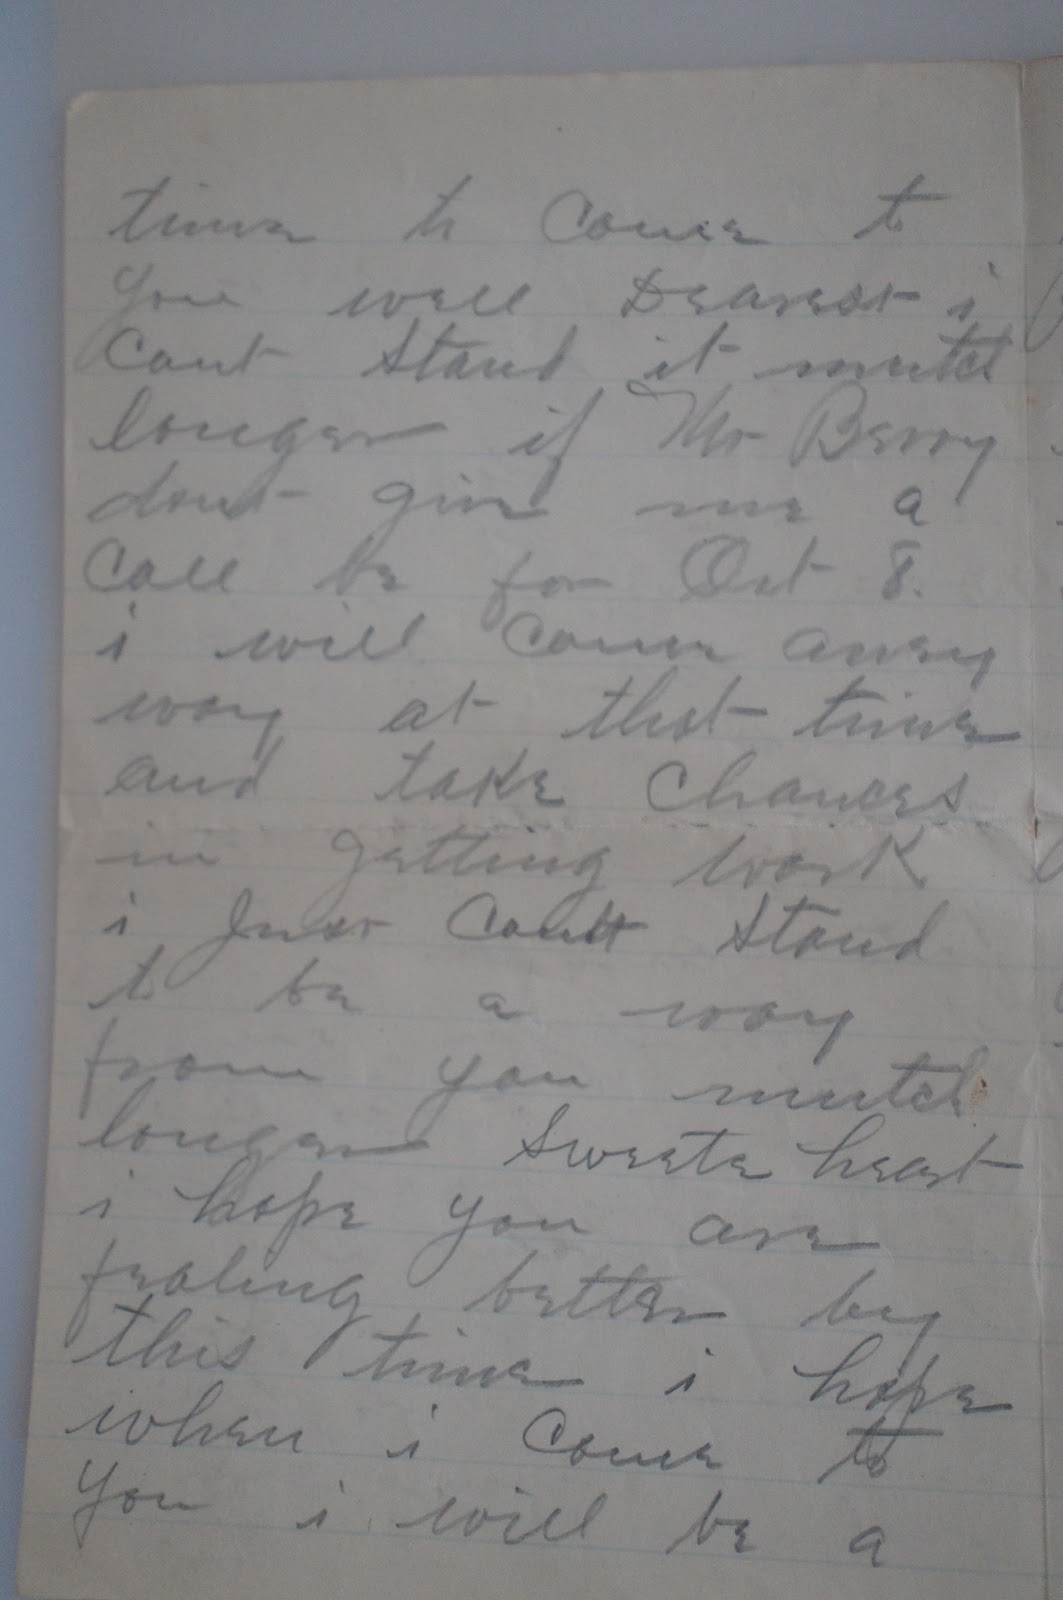 time to come to
you well Dearest i
cant stand it mutch
longer if Mr Berry
dont give me a
call be for Oct 8.
i will come aney
way at that time
and take chances
in getting work
i Just cant stand
to be a way
from you mutch
longer Sweete heart
i hope you are
fealing better by
this time i hope
when i come to
you i will be a